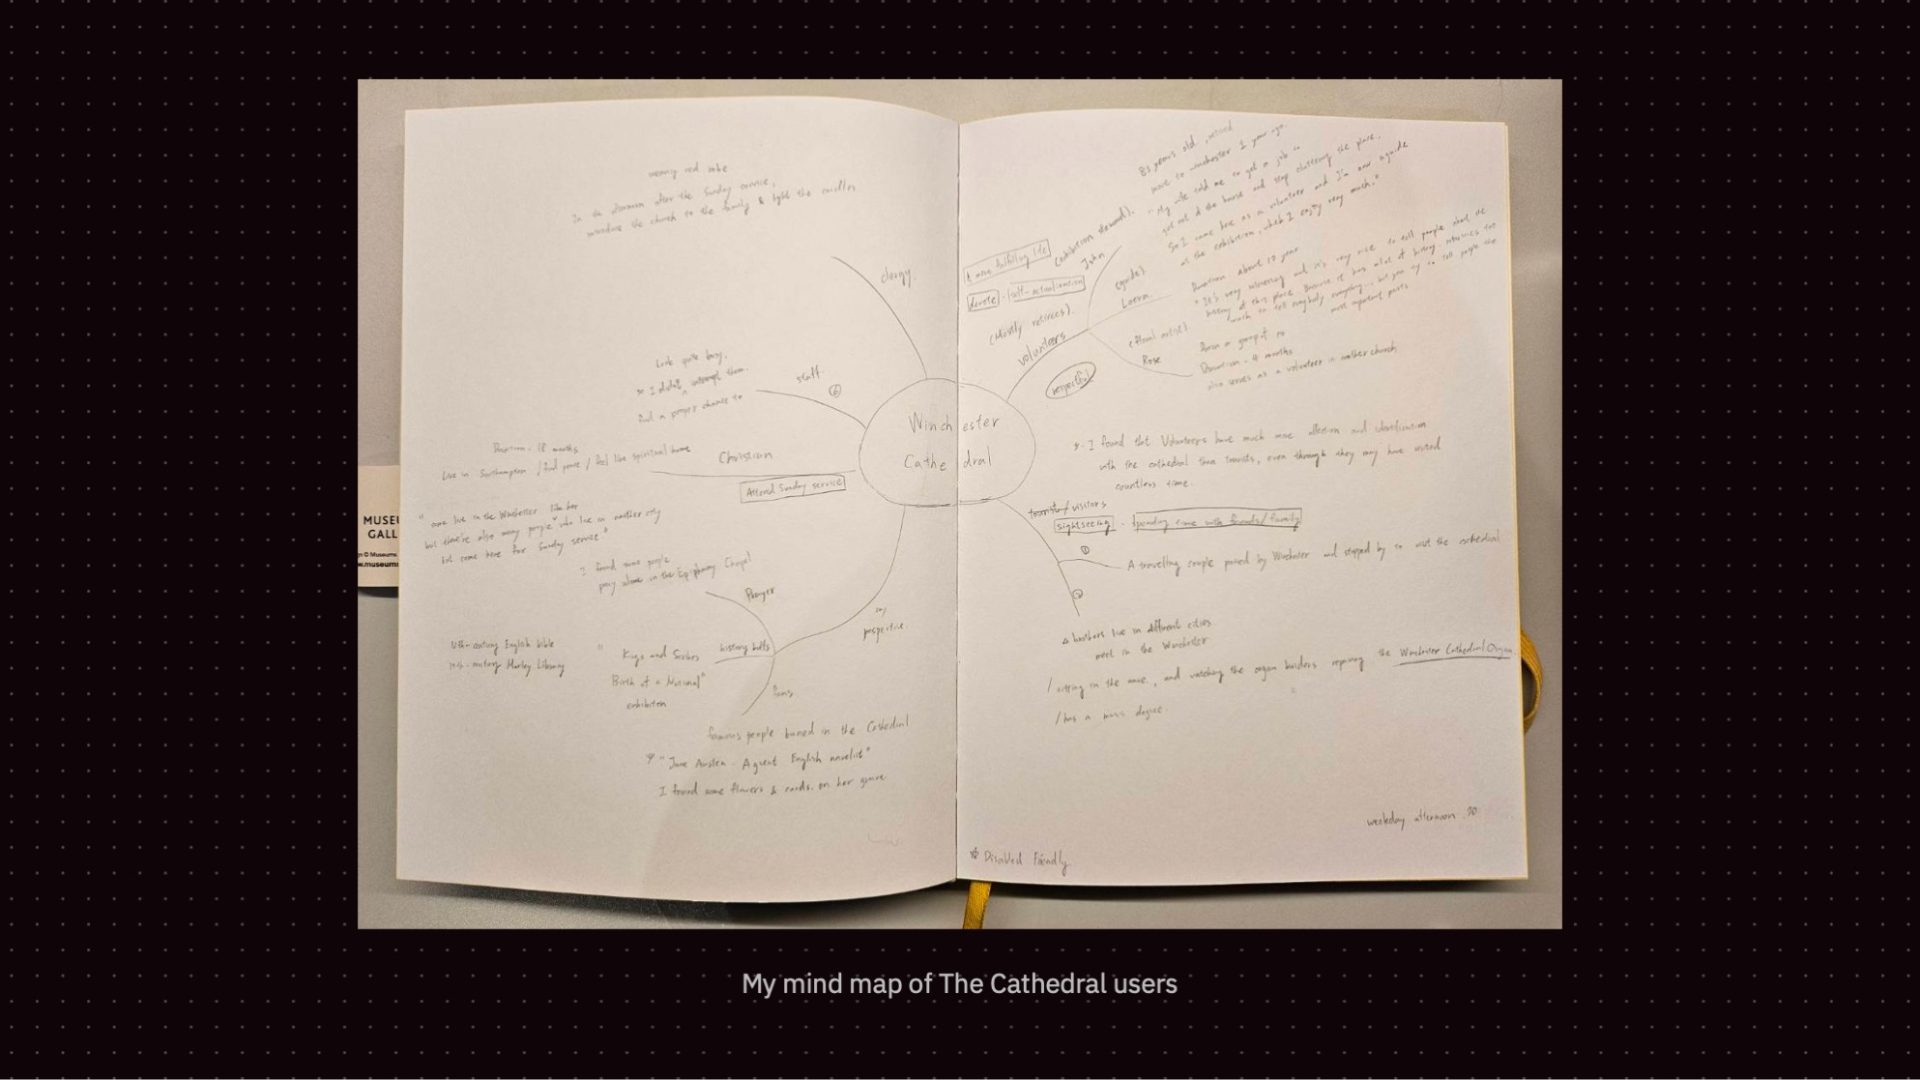 wearing red robe
In an afternoon after the Sunday service,
introduce the church to the family & light the candles
clergy.
Look quite busy.
I didn't interrupt them.
find a proper chance to
staff.
Duration - 18 months
Live in Southampton / find peace / feel like spiritual home
Christian
Attend Sunday service
" some live in the Winchester like her
but there're also many people who live in another city
but come here for Sunday service"
MUSEU
GALL
© Museums
w.museums
I found some people
pray alone in the Epiphany Chapel
Prayer
my
perspective.
history buffs
" Kings and Scribes
Birth of a National"
exhibition
12th-century English bible
Morley Library
fans
famous people buried in the Cathedral
"Jane Austen - A great English novelist"
I found some flowers & cards. on her grave
Winchester
Cathedral
83 years old, retired
move to winchester 1 year ago.
"My wife told me to get a job to
get out of the house and stop cluttering the place.
So I came here as a volunteer and I'm now a guide
at the exhibition, which I enjoy very much."
(exhibition steward).
John
A more fulfilling life
devote - self-actualization
(Mostly retirees).
volunteers
respectful
(guide)
Duration about 10 year
"It's very interesting and it's very nice to tell people about the
history of this place. Because it has a lot of history
to tell everybody everything... but you try to tell people the
most important parts
(floral artist)
Rose
from a group of 10
Duration - 4 months
also serves as a volunteer in another church
I found that Volunteers have much more affection and identification
with the cathedral than tourists, even through they may have visited
countless time.
tourists/visitors
sightseeing - spending time with friends/family
①
A travelling couple passed by Winchester and stopped by to visit the cathedral
②
brothers live in different cities
meet in the Winchester
/ sitting in the nave, and watching the organ builders repairing the Winchester Cathedral Organ.
/ has a music degree.
weekday afternoon
Disabled Friendly
My mind map of The Cathedral users